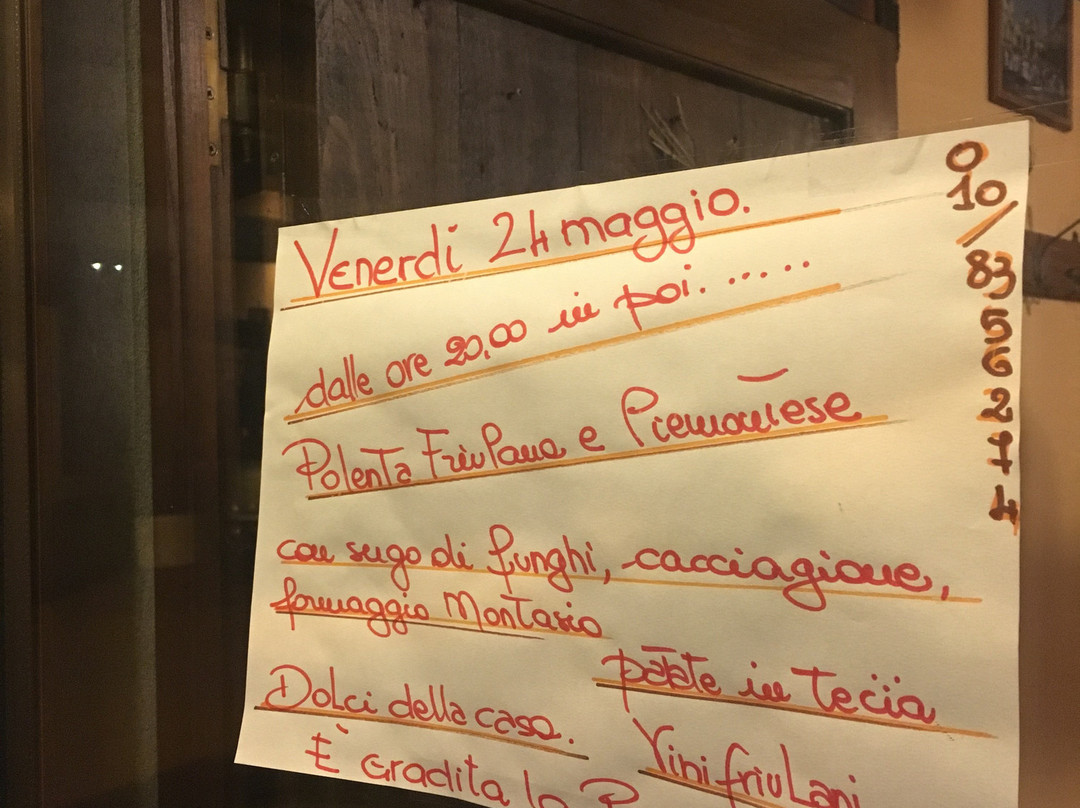 Venerdì 24 maggio.
dalle ore 20,00 in poi. .....
Polenta Friulana e Piemontese
con sugo di funghi, cacciagione,
formaggio Montasio
patate in Tecia
Dolci della casa.
Vini friulani
È gradita la
0
10
/
83
5
6
2
7
4